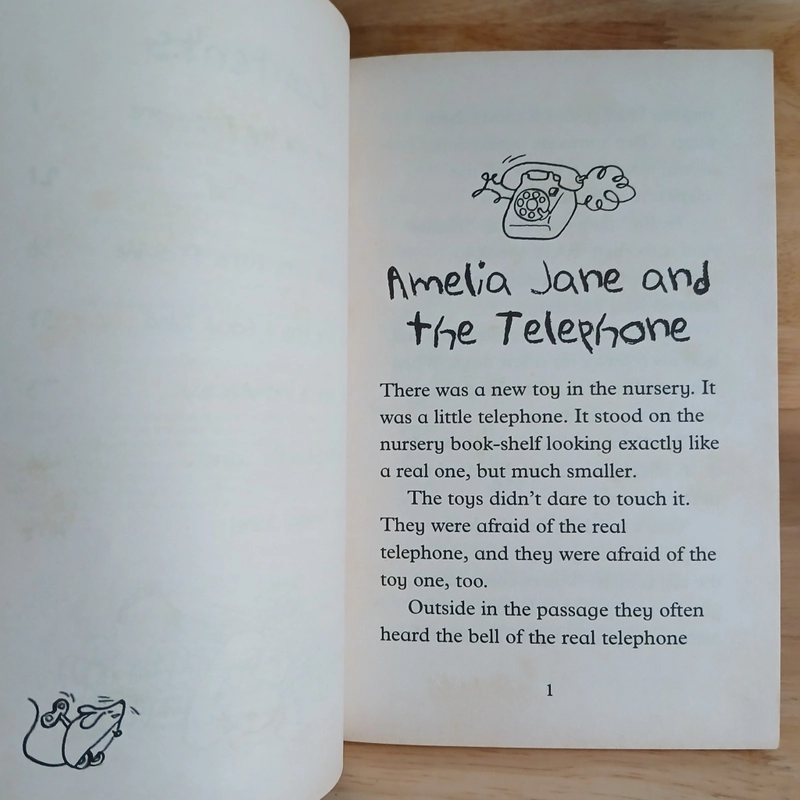 Amelia Jane and
the Telephone
There was a new toy in the nursery. It
was a little telephone. It stood on the
nursery book-shelf looking exactly like
a real one, but much smaller.
The toys didn't dare to touch it.
They were afraid of the real
telephone, and they were afraid of the
toy one, too.
Outside in the passage they often
heard the bell of the real telephone
1